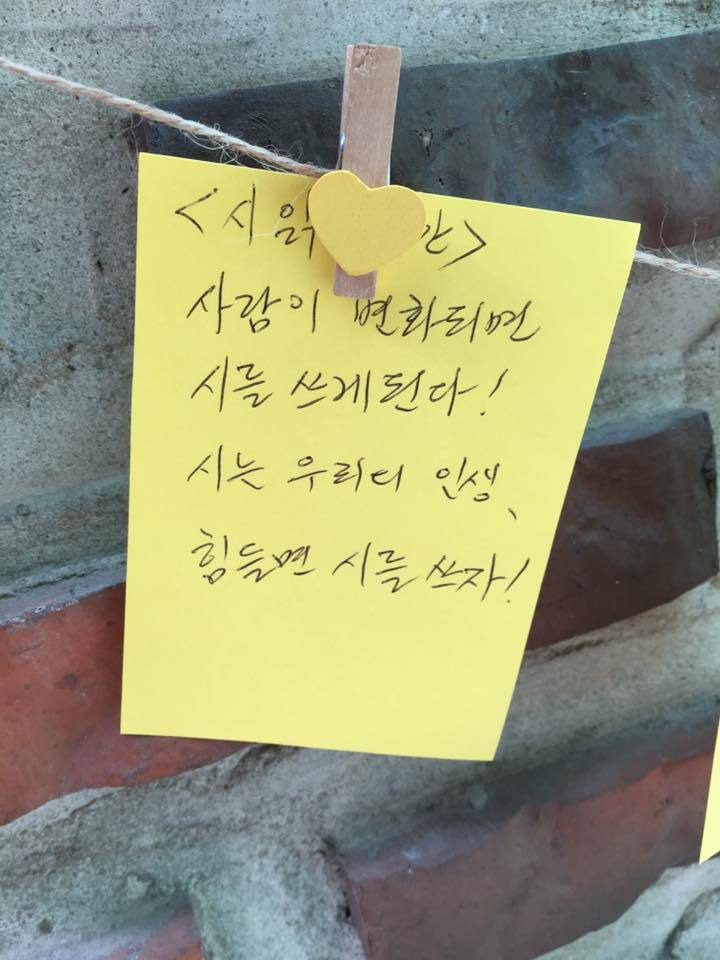 <시 읽 안>
사람이 변화되면
시를 쓰게된다!
시는 우리의 인생,
힘들면 시를 쓰자!